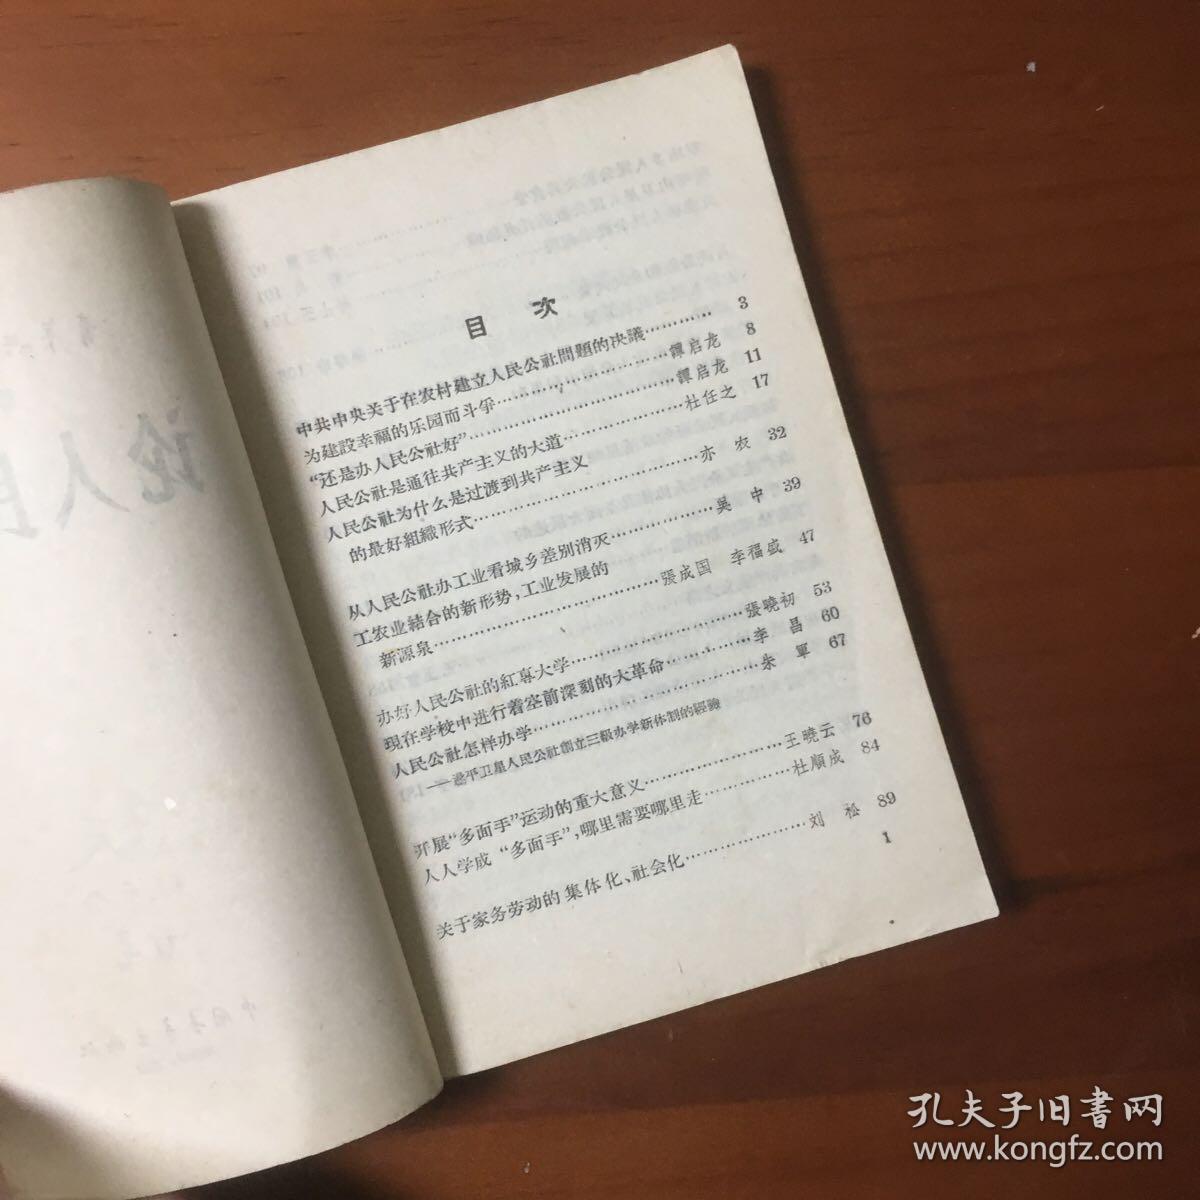 论人民
目 次
中共中央关于在农村建立人民公社問題的决議………… 3
为建設幸福的乐园而斗爭……………………譚启龙 8
“还是办人民公社好”……………………譚启龙 11
人民公社是通往共产主义的大道……………杜任之 17
人民公社为什么是过渡到共产主义
的最好組織形式……………………亦 农 32
从人民公社办工业看城乡差别消灭…………吳 中 39
工农业結合的新形势,工业发展的
新源泉……………………張成国 李福盛 47
办好人民公社的紅專大学………………張曉初 53
現在学校中进行着空前深刻的大革命…………李 昌 60
人民公社怎样办学……………………朱 軍 67
——遂平卫星人民公社創立三級办学新体制的經驗
开展“多面手”运动的重大意义……………王曉云 76
人人学成“多面手”,哪里需要哪里走…………杜順成 84
关于家务劳动的集体化、社会化……………刘 松 89
1
孔夫子旧書网
www.kongfz.com